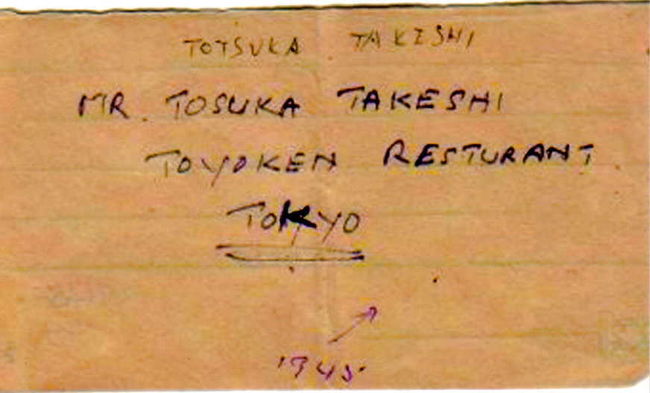 TOTSUKA TAKESHI
MR. TOSUKA TAKESHI
TOYOKEN RESTURANT
TOKYO
1945